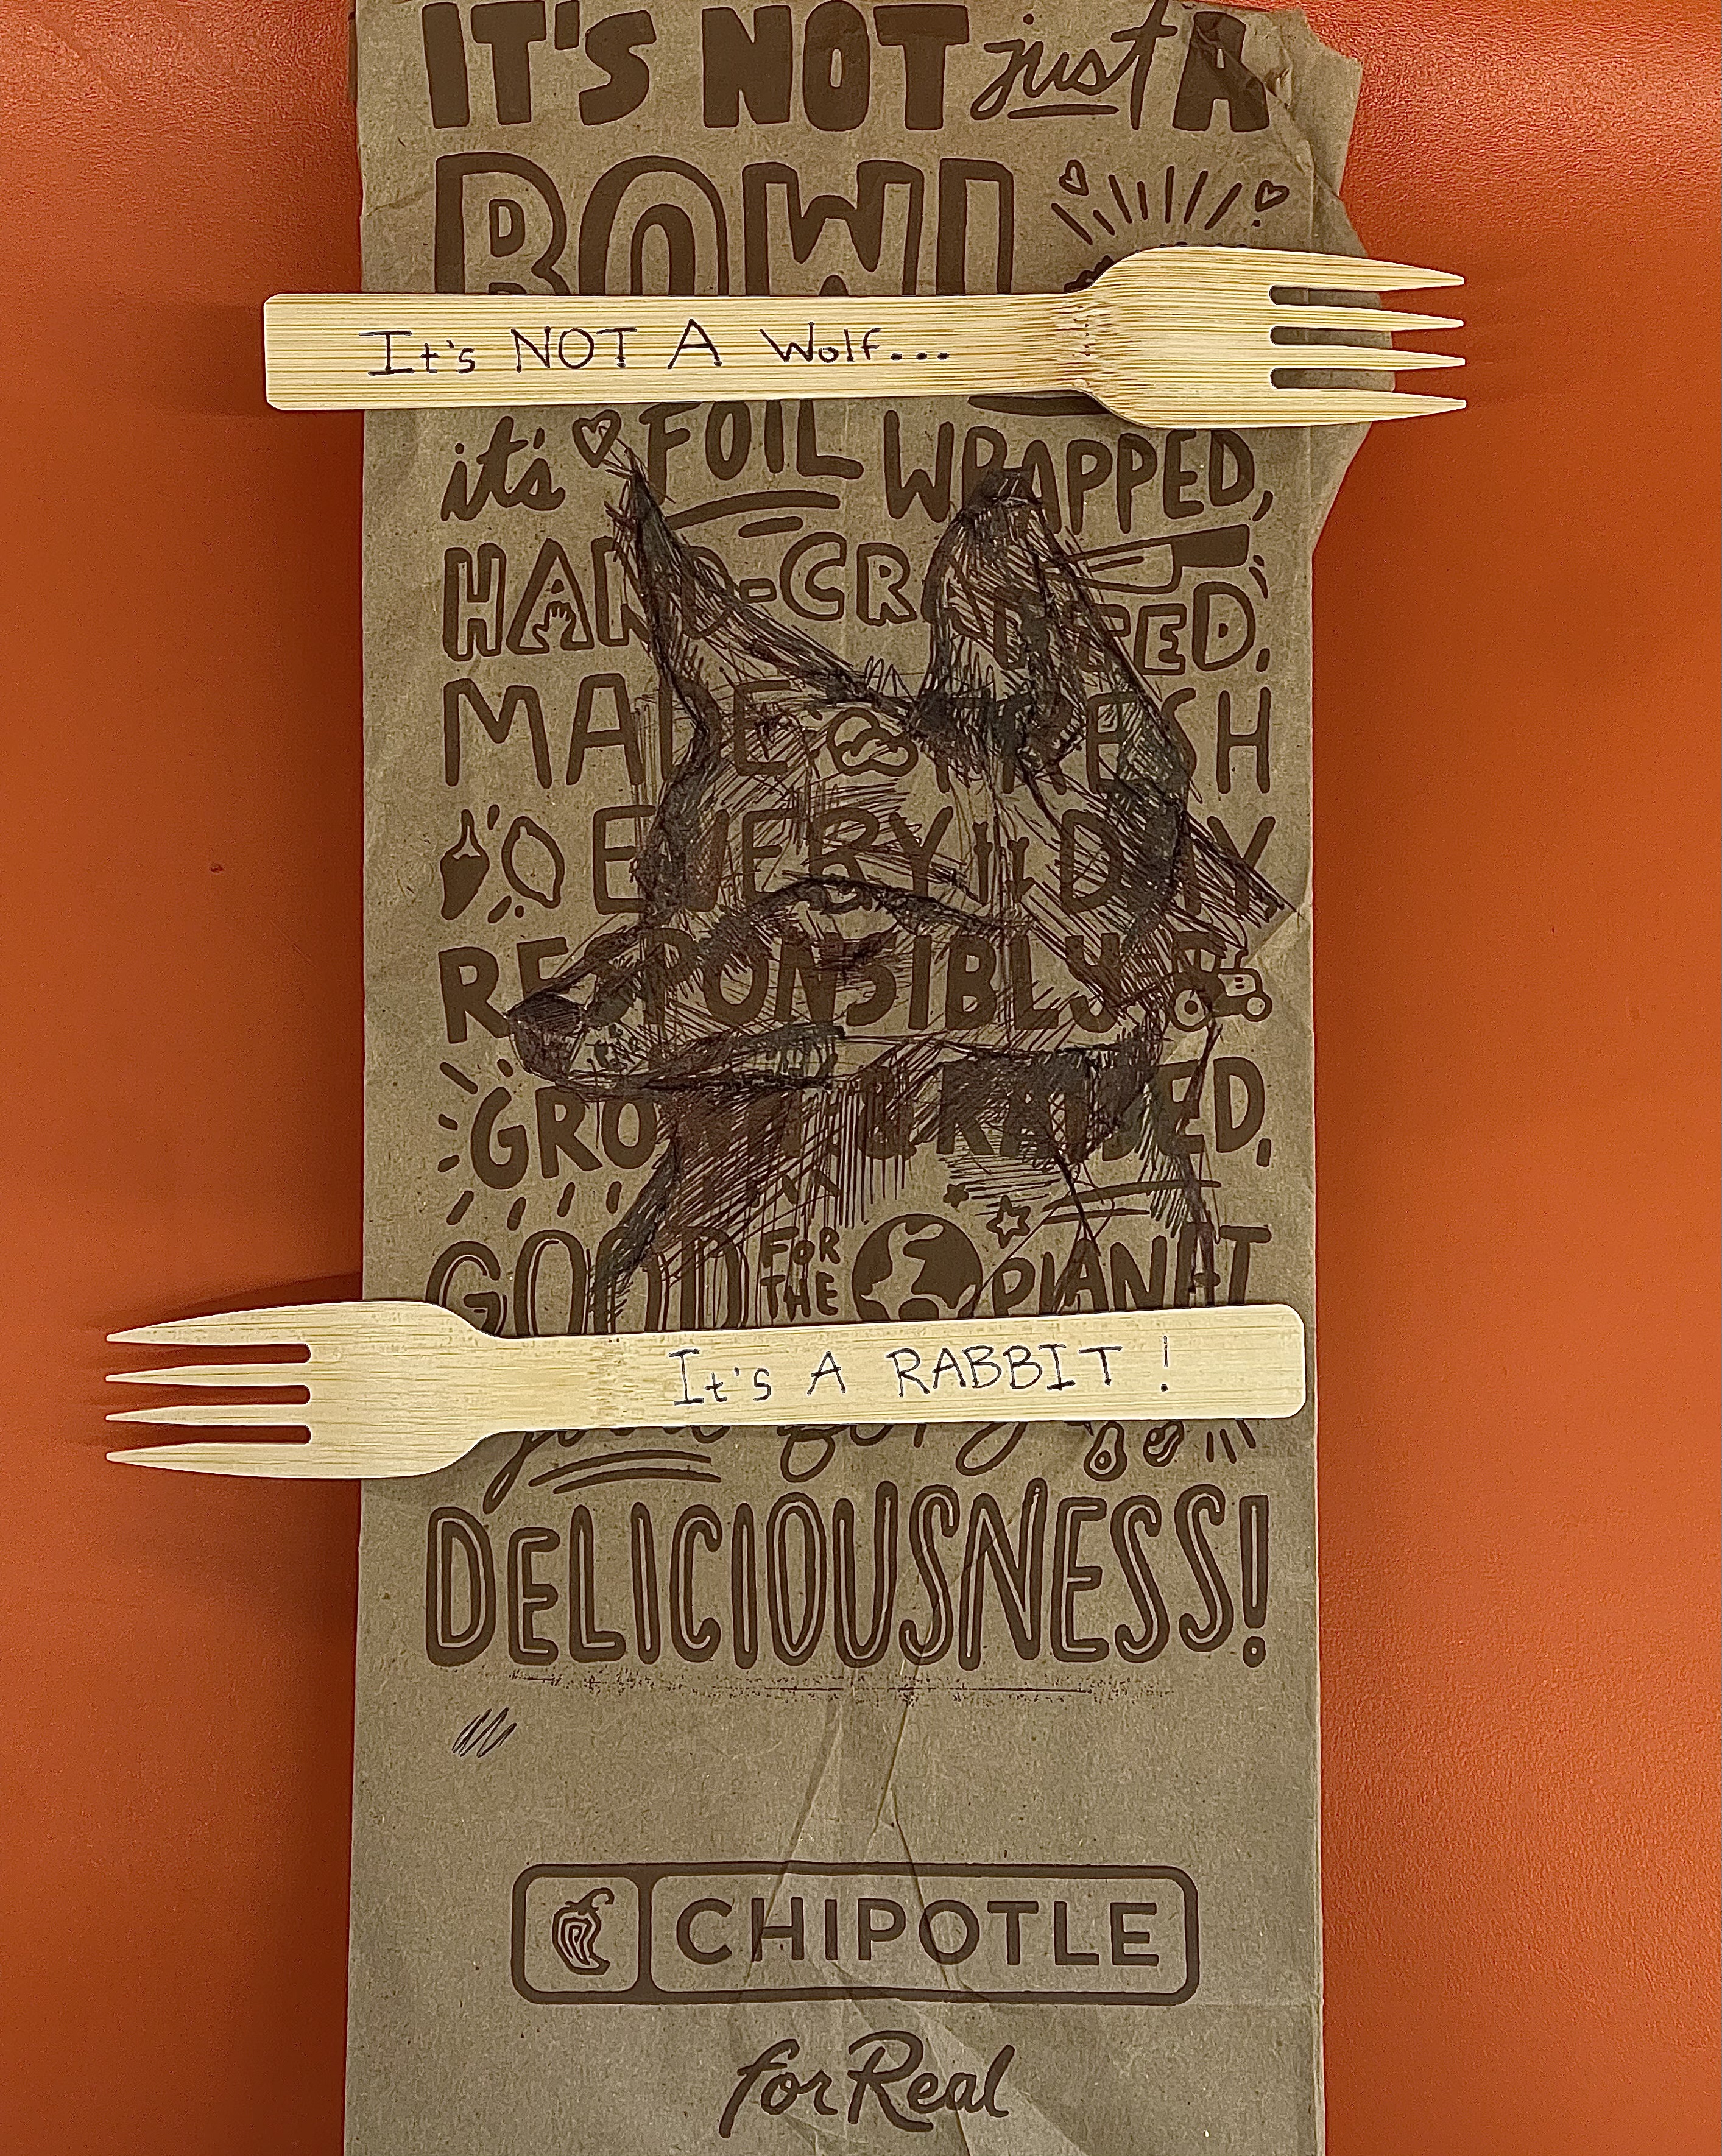 IT'S NOT just A
BOWL
It's NOT A Wolf...
it's FOIL WRAPPED,
HAND-CRAFTED,
MADE FRESH
EVERY DAY
RESPONSIBLY
GROWN & RAISED,
GOOD FOR THE PLANET
It's A RABBIT !
DELICIOUSNESS!
CHIPOTLE
for Real